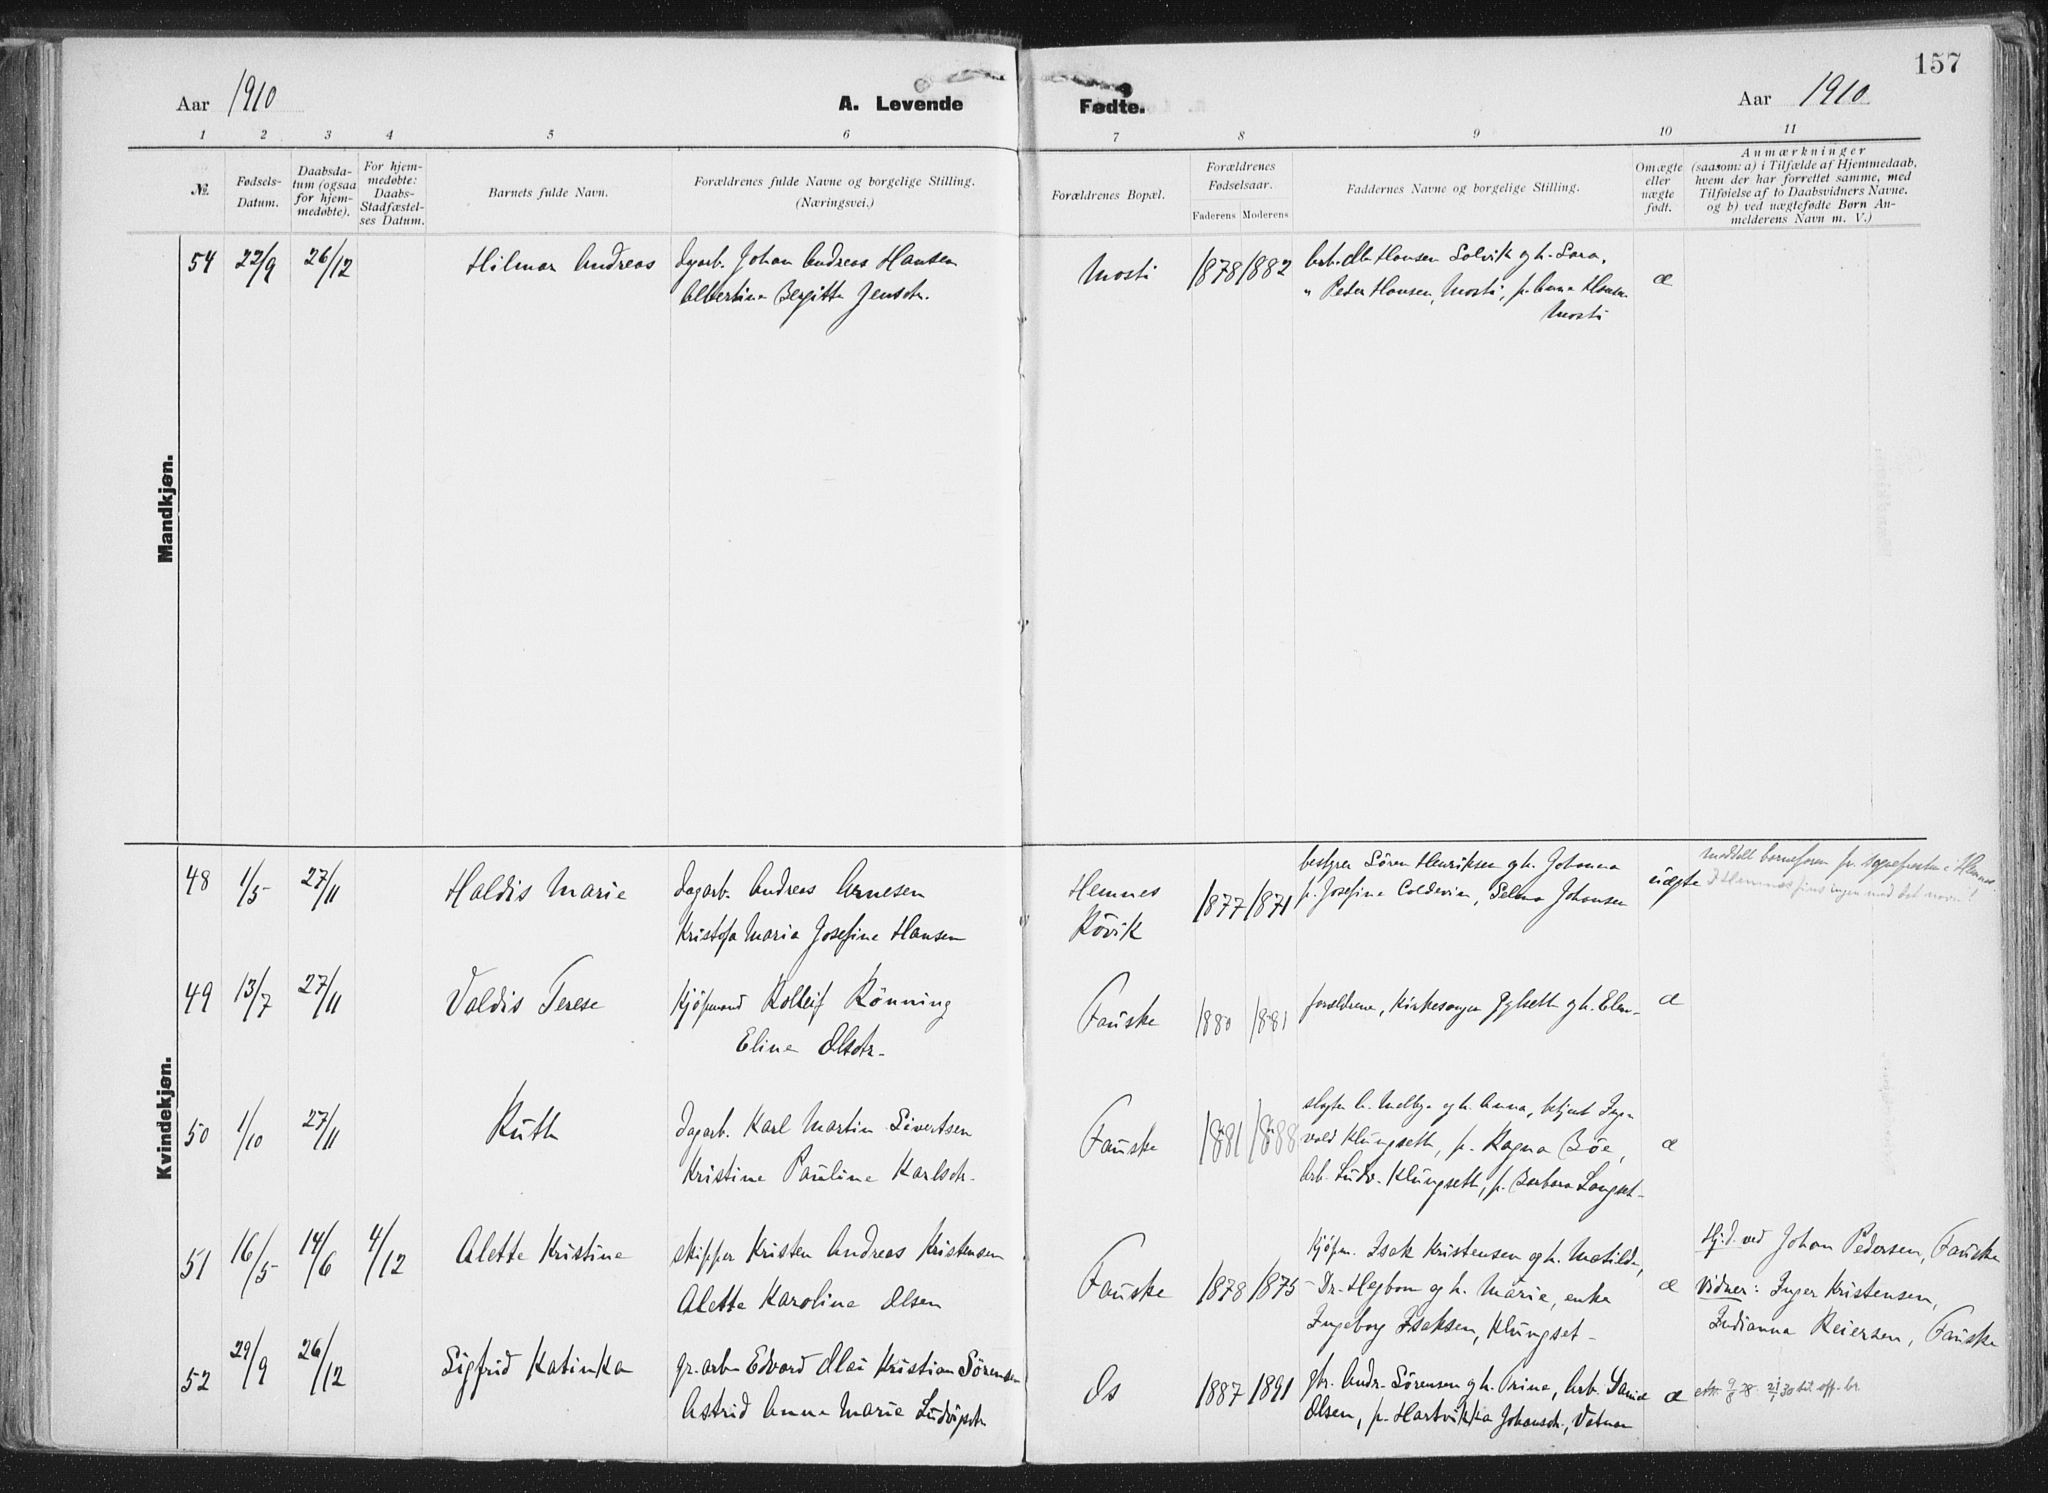 157
Aar 1910 A. Levende Fødte. Aar 1910
1 2 3 4 5 6 7 8 9 10 11
№.
Fødsels-
Datum.
Daabsda-
tum (ogsaa
for hjem-
medøbte).
For hjem-
medøbte:
Daabs-
Stadfæstel-
ses Datum.
Barnets fulde Navn.
Forældrenes fulde Navne og borgelige Stilling.
(Næringsvei.)
Forældrenes Bopæl.
Forældrenes
Fødselsaar.
Faderens Moderens
Faddernes Navne og borgelige Stilling.
Om ægte
eller
uægte
født.
Anmærkninger
(saasom: a) i Tilfælde af Hjemmedaab,
hvem der har forrettet samme, med
Tilføielse af to Daabsvidners Navne.
og b) ved uægtefødte Børn An-
melderens Navn m. V.)
Mandkjøn.
54 22/9 26/12 Hilmar Andreas
dgarb. Johan Andreas Hansen
Albertine Bergitte Jensdtr.
Mosti 1878 1882
Hansen Solvik og h. Sara,
" Peder Hansen, Mosti, p. Anna Hansen
Mosti
æ
Kvindekjøn.
48 1/5 27/11 Haldis Marie
dagarb. Andreas Arnesen
Kristofa Maria Josefine Hansen
Hemnes
Røvik
1877 1871
bestyrer Sören Henriksen og h. Johanna
p. Josefine Coldevin, Selma Johansen
uægte
meddelt barneforen pr. sogneprestn i Hemnes.
I Hemnes fins ingen med det navn!
49 13/7 27/11 Valdis Terese
Kjöpmand Rolleif Rönning
Eline Olsdtr.
Fauske 1880 1881
forældrene, Kirkesanger og h. Elen
æ
50 1/10 27/11 Ruth
dagarb. Karl Martin Sivertsen
Kristine Pauline Karlsdtr.
Fauske 1881 1888
slagter A. Melbye og h. Anna, betjent Inge-
vald Klungseth, p. Ragna Böe,
arb. Ludv. Klungseth, p. Barbara Langset
æ
51 16/5 14/6 4/12 Alette Kristine
skipper Kristen Andreas Kristensen
Alette Karoline Olsen
Fauske 1878 1875
kjöpm. Isak Kristensen og h. Matilde,
Dr. Hegbom og h. Marie, enke
Ingeborg Isaksen, Klungset
æ
Hj.d. ved Johan Pedersen, Fauske
Vidner: Inger Kristensen,
Indianna Reiersen, Fauske
52 29/9 26/12 Sigfrid Katinka
gr.arb Edvard Olai Kristian Sörensen
Astrid Anna Marie Ludvigsdtr
Os 1887 1891
gbr. Andr. Sörensen og h. Trine, Arb.
Olsen, p. Hartvikka Johansdr, Vatnan
æ
att. 9/8 28. 21/1 30 til off. br.